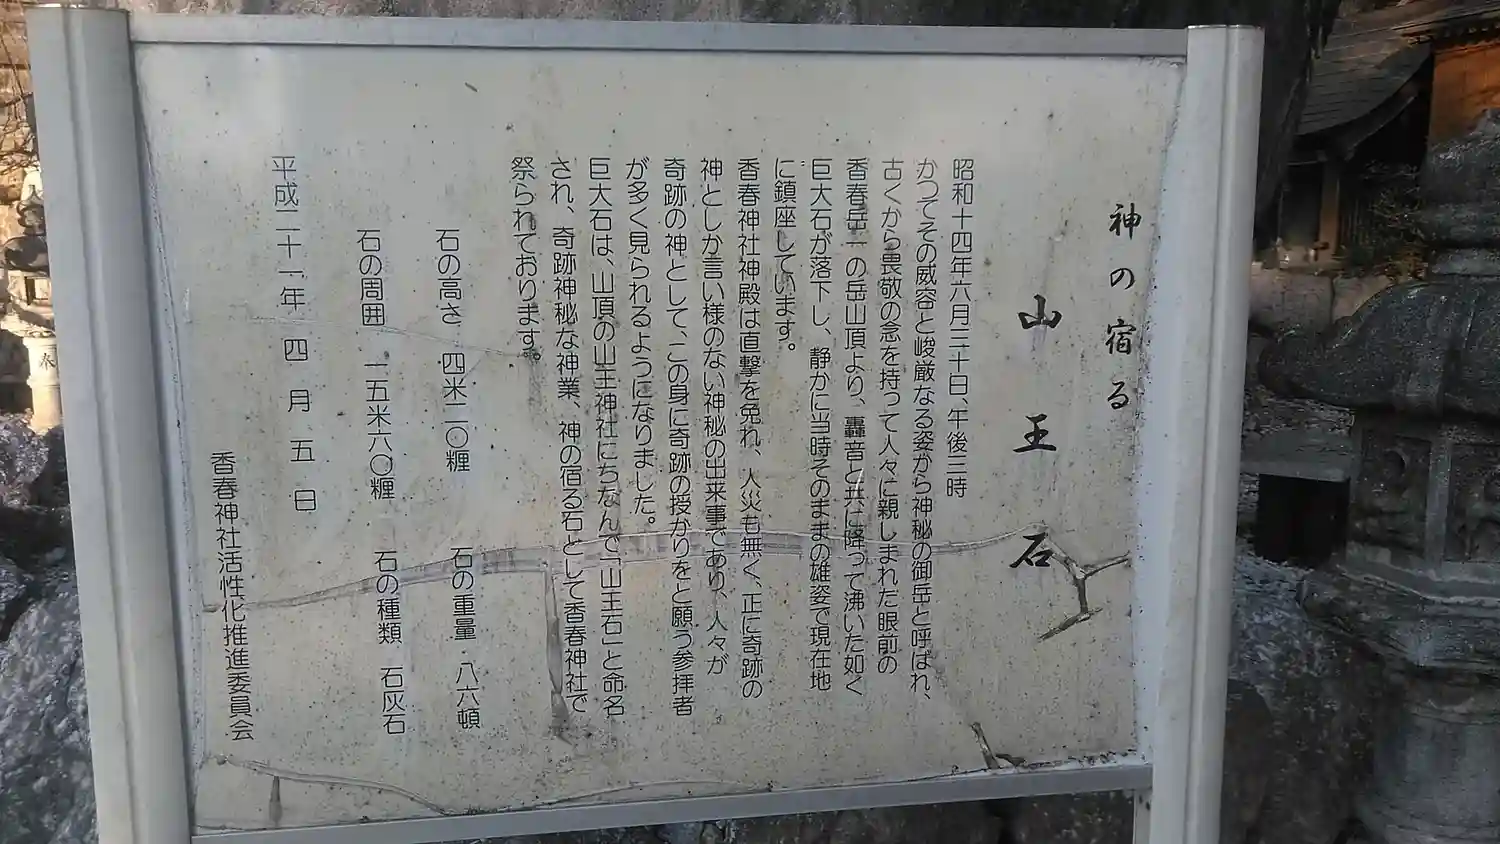 神の宿る
山王石
昭和十四年六月三十日、午後三時
かつてその威容と峻厳なる姿から神秘の御岳と呼ばれ、
古くから畏敬の念を持って人々に親しまれた眼前の
香春岳一の岳山頂より、轟音と共に降って沸いた如く
巨大石が落下し、静かに当時そのままの雄姿で現在地
に鎮座しています。
香春神社神殿は直撃を免れ、人災も無く、正に奇跡の
神としか言い様のない神秘の出来事であり、人々が
奇跡の神として、この身に奇跡の授かりをと願う参拝者
が多く見られるようになりました。
巨大石は、山頂の山王神社にちなんで「山王石」と命名
され、奇跡神秘な神業、神の宿る石として香春神社で
祭られております。
石の高さ 四米二〇糎 石の重量 八六頓
石の周囲 一五米六〇糎 石の種類 石灰石
平成二十一年 四月五日
香春神社活性化推進委員会